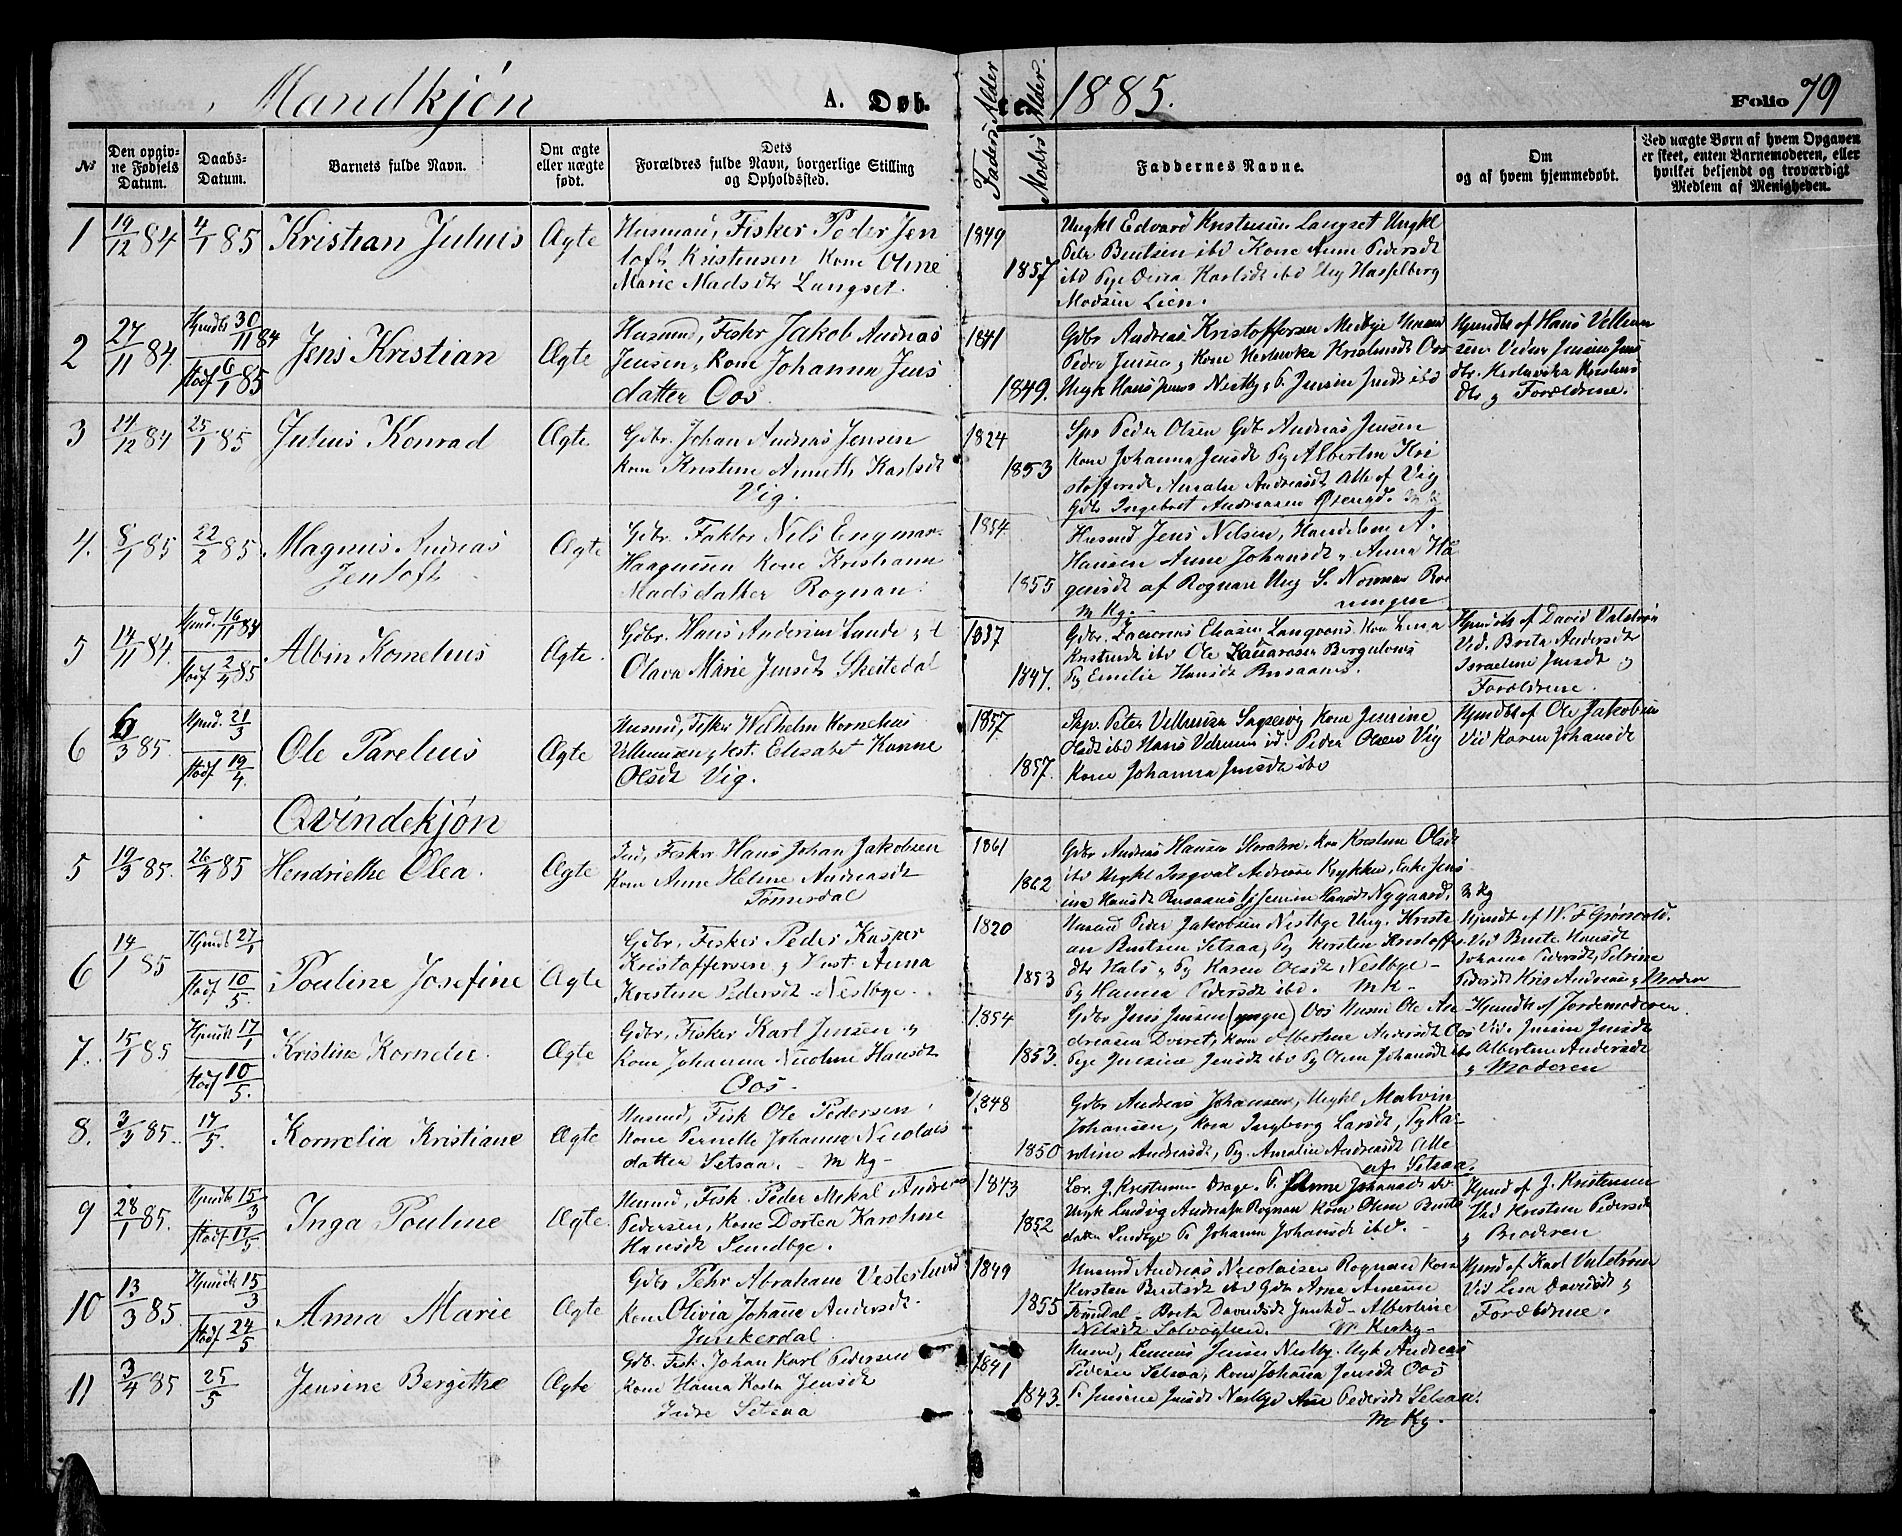 Mandkjøn A. Døbte. 1885. Folio 79
No
Den opgivne Fødsels Datum.
Daabs-Datum.
Barnets fulde Navn.
Om ægte eller uægte født.
Dets Forældres fulde Navn, borgerlige Stilling og Opholdssted.
Faders Alder
Moders Alder.
Faddernes Navne.
Om og af hvem hjemmedøbt.
Ved uægte Børn af hvem Opgaven er skeet, enten Barnemoderen, eller hvilket bekjendt og troværdigt Medlem af Menigheden.
1 19/12 84 4/1 85 Kristian Julius Ægte
Husmand, Fisker Peder Jen
toft Kristensen Kone Anne
Marie Madsdt Langset.
1849
1857
Ungkl Edvard Kristensen Langset Ungkl
Peter Bentsen ibd Kone Anne Pedersdt
ibd Pge Karlsdt ibd Ung Hasselberg
Madsen Lien.
2 27/11 84. Hjmdbt 30/11 84 Stadf 6/1 85 Jens Kristian Ægte
Husmd, Fiskr Jakob Andreas
Jensen, Kone Johanna Jens
datter Oos.
1841
1849.
Gdbr Andreas Kristoffersen Nestbye
Peder Jensen, Kone
Ungk Hans Jensen Nestby, P. Jensine Jensdt ibd
Hjmdbt af Hans Vellum
sen Vidner Jensine Jens
dtr.
dtr og Forældrene.
3 14/12 84 25/1 85 Julius Konrad Ægte
Gdbr. Johan Andreas Jensen
Kone Kristine Anneth Karlsdt
Vig.
1824
1853
Peder Olsen Gdb Andreas Jensen
Kone Johanna Jensdt Pig Albertin Kri
stoffersdt, Amalie Andreasdt Alle af Vig
Gdbr Ingebret Andreassen
4. 8/1 85 22/2 85 Magnus Andreas
Jentoft
Ægte
Gdbr. Faktor Nels Engmar-
Haagensen Kone Kristiann
Madsdatter Rognan.
1854
1855
Husmd Jens Nelsen, Handelsm A.
Hansen Anne Johansdt, Anna Ha
gensdt af Rognan Ung S.
M Kg.
5 14/11 84. Hjmd. 16/11 84 Stadf 2/4 85 Albin Kornelius Ægte.
Gdbr. Hans Andersen Lande
Olava Marie Jensdt Skeitedal
1837
1847.
Gdbr. Zacarias Eliasen Kone Lina
ibd Ole Zacariasen
Pg Emilie Hansdt Rusaanes.
Hjmdbt af David Valstrøm
Vid. Berta Andersdt
Israeline Jensdt og
Forældrene.
6 6/3 85. Hjmd. 21/3 Stadf 19/4. Ole Parelius Ægte
Husmd, Fisker Wilhelm Kornelius
Vellumsen, Hust. Elisabet Hanne
Olsdt Vig.
1857
1857.
Peter Vellumsen Kone Jensine
Olsdt ibd Hans ibd. Peder Olsen Vig
Kone Johanna Jensdt ibd
Hjmdbt af Ole Jakobsen
Vid Karen Johansdt
Qvindekjøn
5 19/3 85. 26/4 85 Hendriette Olea. Ægte
Ind, Fisker Hans Johan Jakobsen
Kone Anne Helene Andreasdt
Tømmerdal
1861
1862
Gdbr Andreas Hansen Kone Kristine Olsdt
ibd Ungkl Ingval Andersen
Hansdt Rusaanes Nygaard.
M Kg
6 14/1 85 Hjmdbt 27/1 Stadf 10/5 Pouline Josefine Ægte
Gdbr. Fisker Peder Kasper
Kristoffersen, Hust. Anna
Kristine Pedersdt Nestbye.
1820
1853
Husmd Peder Jakobsen Nestbye Ung. Kristi
an Bentsen Setsaa, Pg Kirsten Kristoff
dtr Hals, Pg Karen Olsdt Nestbye -
Pg Hanna Pedersdt ibd. M K-
Hjmdbt af W. F. Grønvold.
Vid Berte Hansdt
Johanna Pedersdt, Petrine
Pedersdt Andreas, Moder
7. 15/1 85 Hjmdbt 17/1 Stadf 10/5. Kristine Kornelie. Ægte
Gdbr, Fisker Karl Jensen og
Kone Johanna Nicoline Hansdt
Oos.
1854
1853.
Gdbr Jens Jensen (yngre) Oos Husm Ole An
dreasen Dverset, Kone Albertine Andersdt Oos
Pige Jensine Jensdt ibd Pg Olin Johansdt ibd
Hjmdbt af Jordemoderen.
Vid. Jensine Jensdt
Albertine Andersdt
og Moderen
8. 3/3 85. 17/5. Kornelia Kristiane Ægte
Husmd, Fisk Ole Pedersen
Kone Pernelle Johanna Nicolais
datter Setsaa. - M Kg-
1848
1850
Gdbr Andreas Johansen, Ungkl Malvin
Johansen, Kone Ingeborg Larsdt, Pg Ka-
roline Andreasdt, Pig. Amalie Andreasdt Alle
af Setsaa.
9 28/1 85. Hjmdbt 15/3 Stadf 17/5 Inga Pouline Ægte.
Husmd, Fisk. Peder Mikal Andreas
Pedersen, Kone Dortea Karoline
Hansdt Sundbye.
1843
1852
Lær. J. Kristensen Drage. P. Johansdt ibd.
Ungk Ludvig Andreasen Rognan Kone Olina Bents
datter Sundbye P. Johanna Johansdt ibd.
Hjmd af J. Kristensen
Vid Kirsten Pedersdt
og Broderen
10 13/3 85. Hjmdbt 15/3 Stadf 24/5 Anna Marie Ægte
Gdbr Pehr Abraham Vesterlund
Kone Olivia Johanne Andersdt.
Junkerdal
1849
1855
Husmd Andreas Nicolaisen Rognan Kone
Kirsten Bentsdt ibd Gdbr Arne Arnesen
Berta Davidsdt Junkd - Albertine
Nilsdt Solvaglien. M Kirkg-
Hjmd af Karl Valstrøm
Vid Lina Davidsdt og
Forældrene.
11 3/4 85 25/5 Jensine Bergithe Ægte
Gdb. Fisk. Johan Karl Pedersen
Kone Hanna Jensdt
Indre Setsaa
1841
1843.
Husmd, Jensen Nestby. Ungk Andreas
Pedersen Setsaa, Kone Johanna Jensdt Oos
P. Jensine Jensdt Nestbye Ane Pedersdt Setsaa.
M Kg.